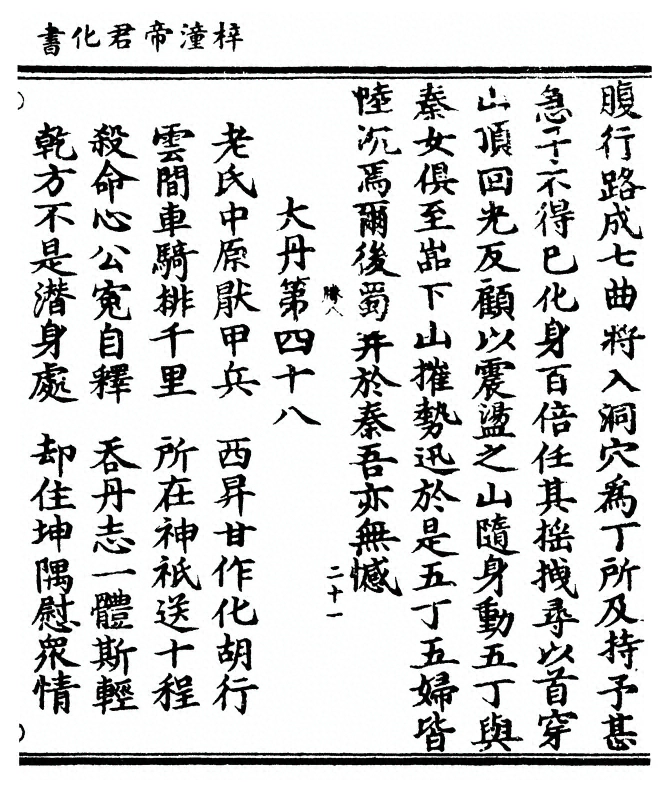 梓潼帝君化書
腹行路成七曲將入洞穴爲丁所及持予甚
急予不得已化身百倍任其揺拽尋以首穿
山頂回光反顧以震盪之山隨身動五丁與
秦女俱至嵓下山摧勢迅於是五丁五婦皆
陸沉焉爾後蜀并於秦吾亦無憾
勝八
二十一
大丹第四十八
老氏中原厭甲兵 西昇甘作化胡行
雲間車騎排千里 所在神祇送十程
殺命心公寃自釋 吞丹志一體斯輕
乾方不是潛身處 却住坤隅慰衆情